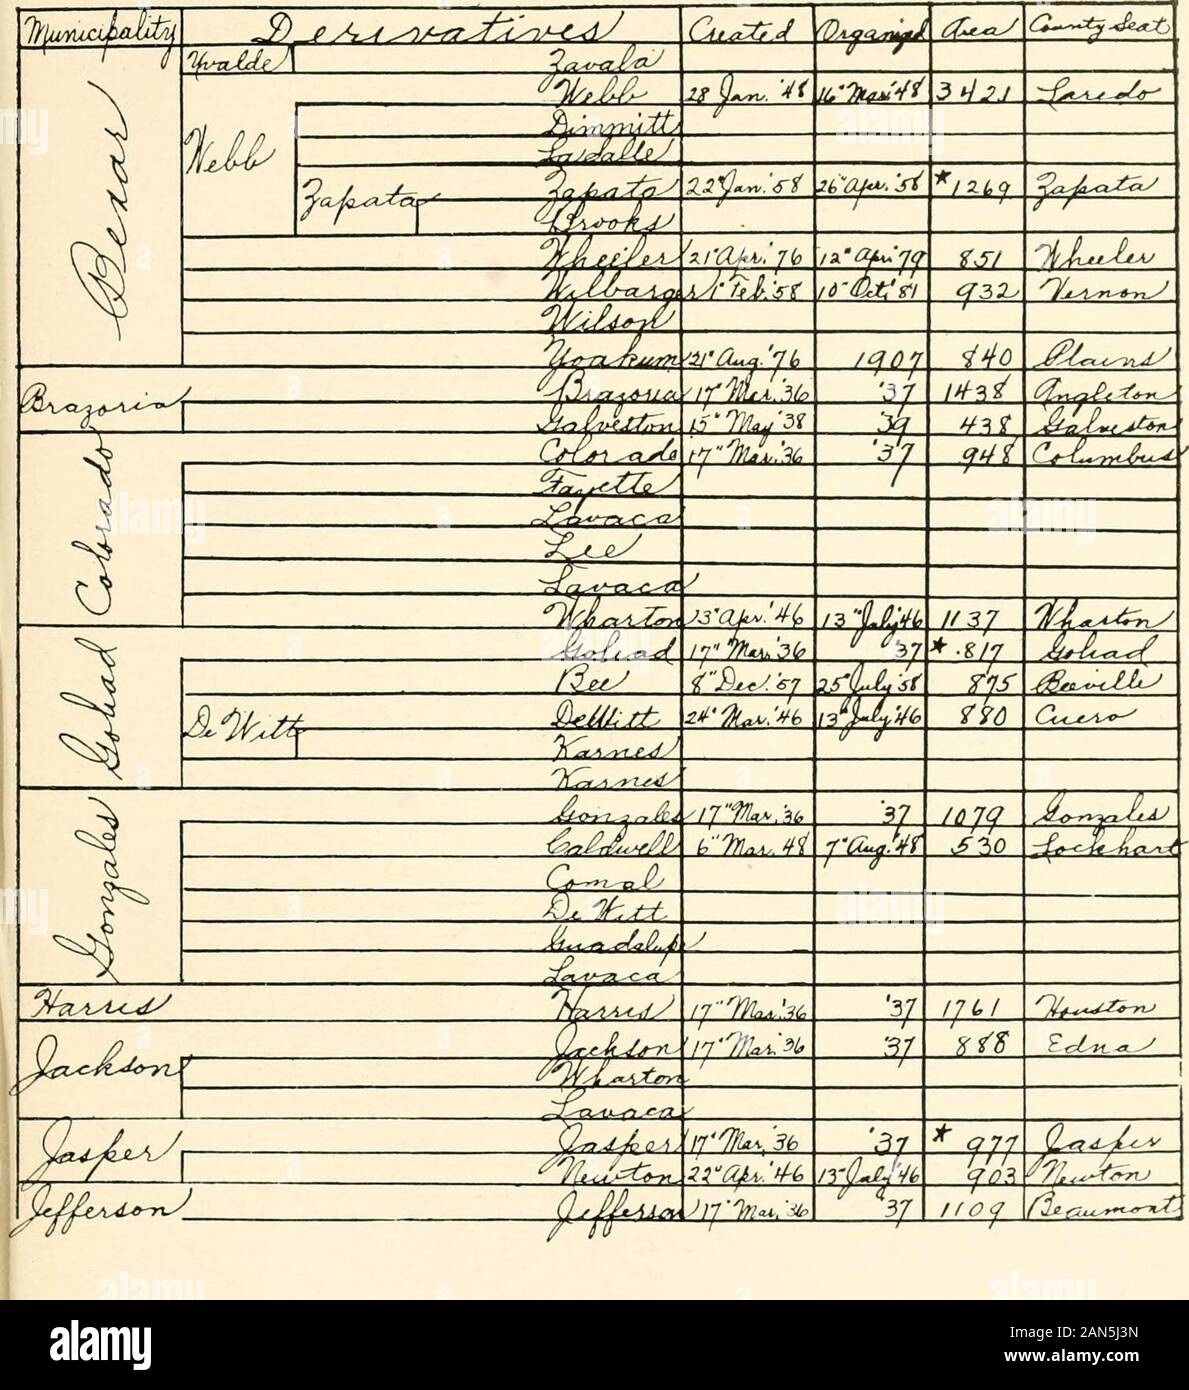 Municipality Derivatives Created Organized Area County Seat
Uvalde Zavala
Webb 28 Jan. '48 16" Mar '48 342J Laredo
Dimmitt
Webb
La Salle
Zapata 22" Jan. '58 26" Apr. '58 *1269 Zapata
Zapata
Brooks
Bexar
Wheeler 21" Apr. '76 12" Apr '79 851 Wheeler
Wilbarger 1" Feb. '58 10" Oct. '81 932 Vernon
Wilson
Yoakum 21" Aug. '76 1907 840 Plains
Brazoria Brazoria 17" Mar. '36 '37 1438 Angleton
Galveston 15" May '38 '39 438 Galveston
Colorado Colorado 17" Mar. '36 '37 948 Columbus
Fayette
Lavaca
Lee
Lavaca
Wharton 3" Apr. '46 13" July '46 1137 Wharton
Goliad Goliad 17" Mar. '36 '37 * 817 Goliad
Bee 8" Dec. '57 25" July '58 875 Beeville
De Witt DeWitt 24" Mar. '46 13" July '46 880 Cuero
Karnes
Karnes
Gonzales Gonzales 17" Mar. '36 '37 1079 Gonzales
Caldwell 6" Mar. '48 7" Aug. '48 530 Lockhart
Comal
De Witt
Guadalupe
Lavaca
Harris Harris 17" Mar. '36 '37 1761 Houston
Jackson Jackson 17" Mar. '36 '37 888 Edna
Wharton
Lavaca
Jasper Jasper 17" Mar. '36 '37 * 977 Jasper
Newton 22" Apr. '46 13" July '46 903 Newton
Jefferson Jefferson 17" Mar. '36 '37 1109 Beaumont
alamy
Image ID: 2AN5J3N
www.alamy.com